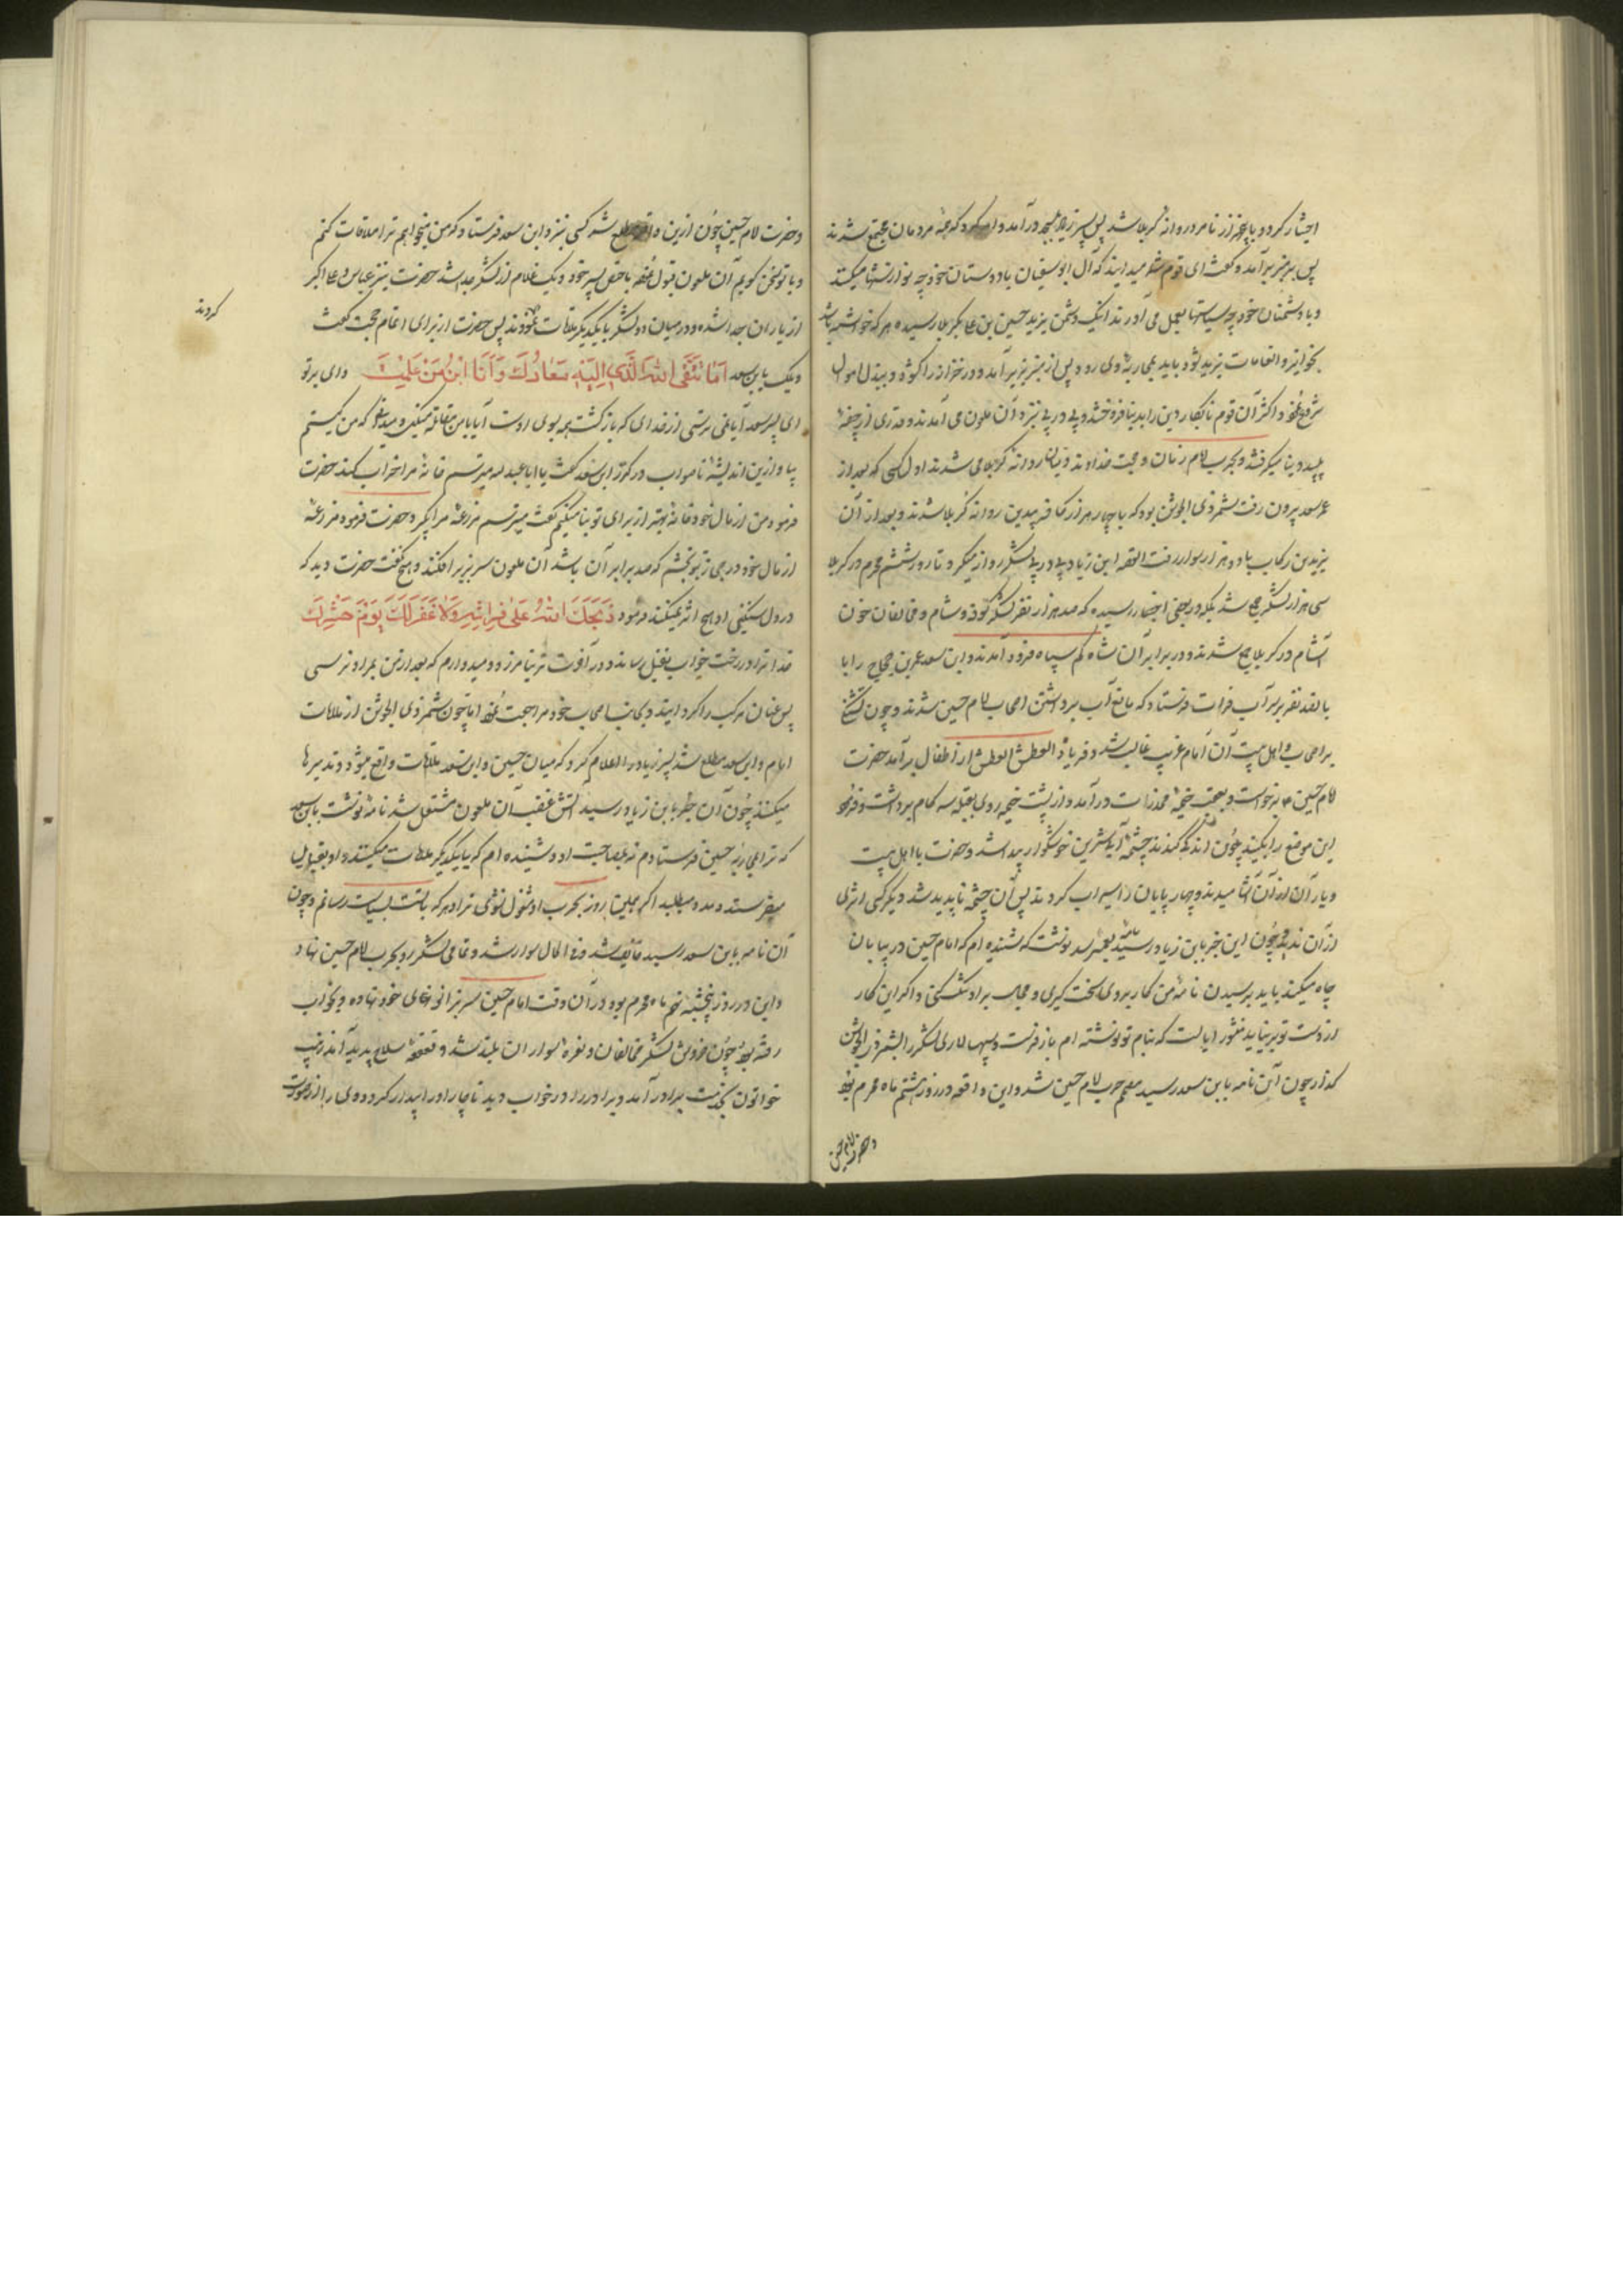 اختیار کرد و با پنجهزار نامرد روانهٔ کربلا شد پس پسر زیاد بمسجد درآمد و امر کرد که همه مردمان مجتمع شدند
پس بر منبر برآمد و گفت ای قوم شما میدانید که آل ابوسفیان با دوستان خود چه نوازشها میکنند
و با دشمنان خود چه سیاستها بعمل می آورند اینک دشمن یزید حسین بن علی بکربلا رسیده هر که خواسته باشد
بجوایز و انعامات یزید باید بمحاربهٔ وی رود پس از منبر بزیر آمد و در خزانه را گشود و ببذل اموال
شروع نمود و اکثر آن قوم نابکار دین را بدینار فروخته و پی در پی نزد آن ملعون می آمدند و قدری از جیفهٔ
پلید دنیا میگرفتند و بحرب امام زمان و حجت خداوند روانه کربلا می شدند اول کسی که بعد از
عمر سعد بیرون رفت شمر ذی الجوشن بود که با چهار هزار کافر بیدین روانهٔ کربلا شدند و بعد از آن
یزید بن رکاب با دو هزار سوار رفت القصه ابن زیاد پی در پی لشکر روانه میکرد تا روز ششم محرم در کربلا
سی هزار لشکر جمع شد بلکه در بعضی اخبار رسیده که صد هزار نفر لشکر کوفه و شام و مخالفان خون
آشام در کربلا جمع شدند و در برابر آن شاه کم سپاه فرود آمدند و ابن سعد عمر بن حجاج را با
پانصد نفر بر سر آب فرات فرستاد که مانع آب برداشتن اصحاب امام حسین شدند و چون تشنگی
بر اصحاب و اهل بیت آن امام غریب غالب شد و فریاد العطش العطش از اطفال برآمد حضرت
امام حسین ع برخواست و بعقب خیمهٔ مخدرات درآمد و از پشت خیمه روی بقبله سه گام برداشت و فرمود
این موضع را بکنید چون اندکی کندند چشمهٔ آب شیرین خوشگوار پیدا شد و حضرت با اهل بیت
و یاران از آن آشامیدند و چهار پایان را سیراب کردند پس آن چشمه ناپدید شد و دیگر کسی اثری
از آن ندید و چون این خبر بابن زیاد رسید نامه بعمر سعد نوشت که شنیده ام که امام حسین در بیابان
چاه میکند باید برسیدن نامهٔ من کار بر وی سخت گیری و مجال بر او تنگ کنی و اگر این کار
از دست تو بر نیاید منشور ایالت که بنام تو نوشته ام باز فرست و سپهسالاری لشکر را بشمر ذی الجوشن
گذار چون آن نامه بابن سعد رسید مصمم حرب امام حسین شد و این واقعه در روز هشتم ماه محرم بود
و حضرت امام حسین
و حضرت امام حسین چون ازین واقعه مطلع شد کسی نزد ابن سعد فرستاد که من میخواهم ترا ملاقات کنم
و با تو سخن گویم آن ملعون قبول نموده با حفص پسر خود و یک غلام از لشکر جدا شد حضرت نیز عباس و علی اکبر
از یاران جدا شده و در میان دو لشکر با یکدیگر ملاقات نمودند پس حضرت از برای اتمام حجت گفت
ویلک یابن سعد اَمَا تَتَّقِی اللهَ الَّذِی اِلَیْهِ مَعَادُكَ وَاَنَا ابْنُ مَنْ عَلِمْتَ وای بر تو
ای پسر سعد آیا نمی ترسی از خدای که بازگشت همه بسوی اوست آیا با من مقاتله میکنی و میدانی که من کیستم
بیا و ازین اندیشهٔ ناصواب درگذر ابن سعد گفت یا ابا عبدالله میترسم خانهٔ مرا خراب کنند حضرت
فرمود من از مال خود خانهٔ بهتر از برای تو بنا میکنم گفت میترسم مزرعهٔ مرا بگیرد حضرت فرمود مزرعهٔ
از مال خود در حجاز بتو بخشم که صد برابر آن باشد آن ملعون سر بزیر افکند و هیچ نگفت حضرت دید که
در دل سنگین او هیچ اثر نمیکند فرمود ذَبَحَكَ اللهُ عَلٰی فِرَاشِكَ وَلَا غَفَرَ لَكَ یَوْمَ حَشْرِكَ
خدا ترا در رخت خواب بقتل رساند و در آخرت ترا نیامرزد و امیدوارم که بعد از من بمراد نرسی
پس عنان مرکب را گردانید و بجانب اصحاب خود مراجعت نمود اما چون شمر ذی الجوشن از ملاقات
امام و ابن سعد مطلع شد پسر زیاد را اعلام کرد که میان حسین و ابن سعد ملاقات واقع میشود و تدبیرها
میکنند چون آن خط بابن زیاد رسید آتش غضب آن ملعون مشتعل شد نامهٔ نوشت بابن سعد
که ترا بمحاربهٔ حسین فرستادم نه بمصاحبت او و شنیده ام که با یکدیگر ملاقات میکنید
میفرستد و مدد میطلبد اگر همین روز بحرب او مشغول نشوی ترا و هر که با تست بسیاست رسانم و چون
آن نامه بابن سعد رسید خائف شد و فی الحال سوار شد و تمامی لشکر رو بحرب امام حسین نهاد
و این در روز پنجشنبه نهم ماه محرم بود در آن وقت امام حسین سر بزانوهای خود نهاده و بخواب
رفته بود چون خروش لشکر مخالفان و نعره سواران بلند شد و قعقعهٔ سلاح پدید آمد زینب
خواتون بخدمت برادر آمد و برادر را در خواب دید ناچار او را بیدار کرد و وی را از آن صورت
کردند